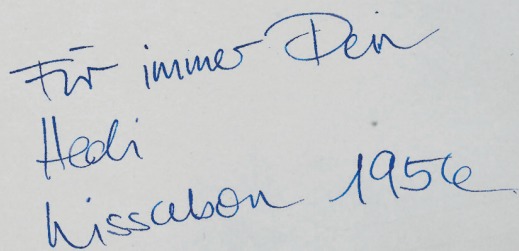 Für immer Dein
Hedi
Lissabon 1956